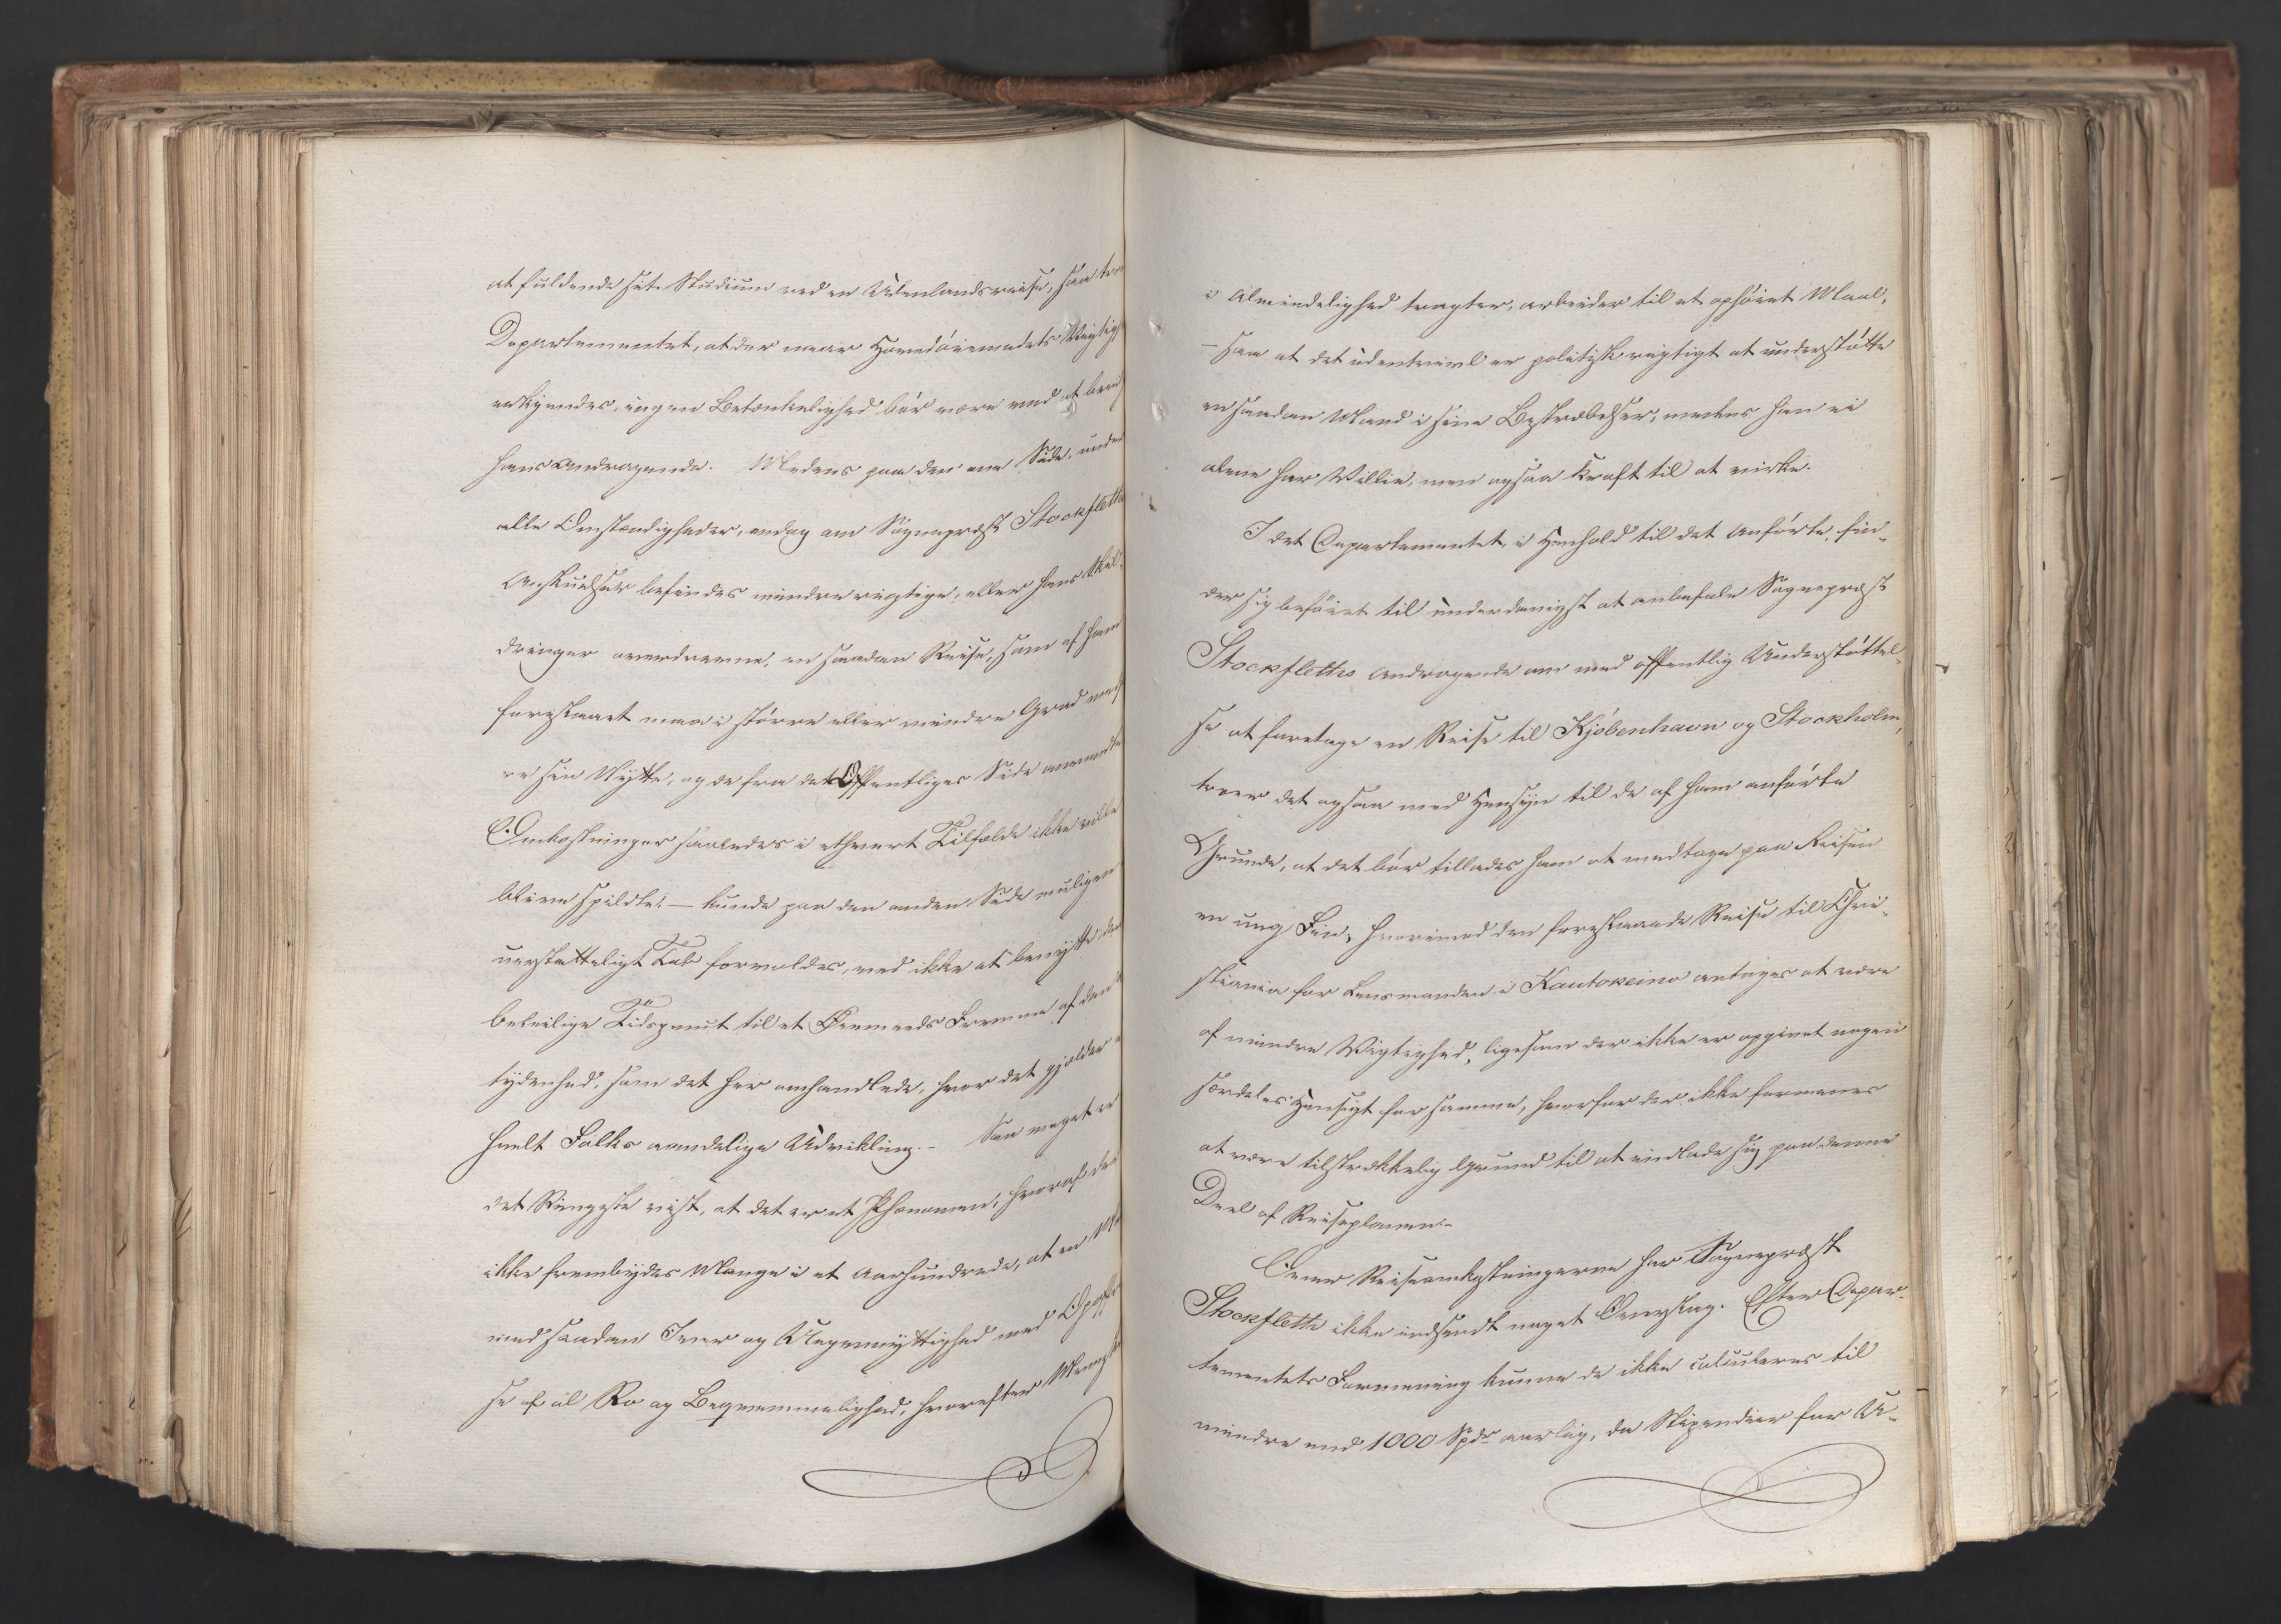 at fuldende sit Studium ved en Udenlandsreise, saa tror
Departementet, at der naar Hovedøiemedets Vigtigh
erkjendes, ingen Betænkelighed bør være ved at
hans Andragende. Medens paa den ene Side, under
alle Omstændigheder, endog om Sognepræst Stockfleths
Anskuelser befindes mindre rigtige, eller hans Skil-
dringer overdrevne, en saadan Reise, som af ham
foreslaaet maa i større eller mindre Grad
re sin Nytte, og de fra det Offentliges Side anvendte
Omkostninger saaledes i ethvert Tilfælde ikke ville
blive spildte; — kunde paa den anden Side muligen
uerstatteligt Tab forvoldes, ved ikke at benytte det
beleilige Tidspunct til et Øiemeeds Fremme af den
tydenhed, som det her omhandlede, hvor det gjælder
heelt Folks aandelige Udvikling. – Saa meget er
det Ringeste vist, at det er et Phænomen, hvoraf der
ikke frembydes Mange i et Aarhundrede, at en
med saadan Iver og Uegennyttighed med Opoffrel
se af al Ro og Beqvemmelighed, hvorefter Mennesk
i Almindelighed tragter, arbeider til et ophøiet Maal,
– saa at det udentvivl er politisk rigtigt at understøtte
en saadan Mand i sine Bestræbelser, medens han ei
alene har Villie, men ogsaa Kraft til at virke.
I det Departementet, i Henhold til det Anførte, fin-
der sig beføiet til underdanigst at anbefale Sognepræst
Stockfleths Andragende om med offentlig Understøttel-
se at foretage en Reise til Kjøbenhavn og Stockholm,
troer det ogsaa med Hensyn til de af ham anførte
Grunde, at det bør tillades ham at medtage paa Reisen
en ung Fin; hvorimod den foreslaaede Reise til Chri-
stiania for Lensmanden i Kautokeino antages at være
af mindre Vigtighed, ligesom der ikke er opgivet nogen
særdeles Hensigt for samme, hvorfor der ikke formenes
at være tilstrækkelig Grund til at indlade sig paa denne
Deel af Reiseplanen. –
Over Reiseomkostningerne har Sognepræst
Stockfleth ikke indsendt noget Overslag. Efter Depar-
tementets Formening kunne de ikke calculeres til
mindre end 1000 Spdr aarlig, da Stipendier for U-